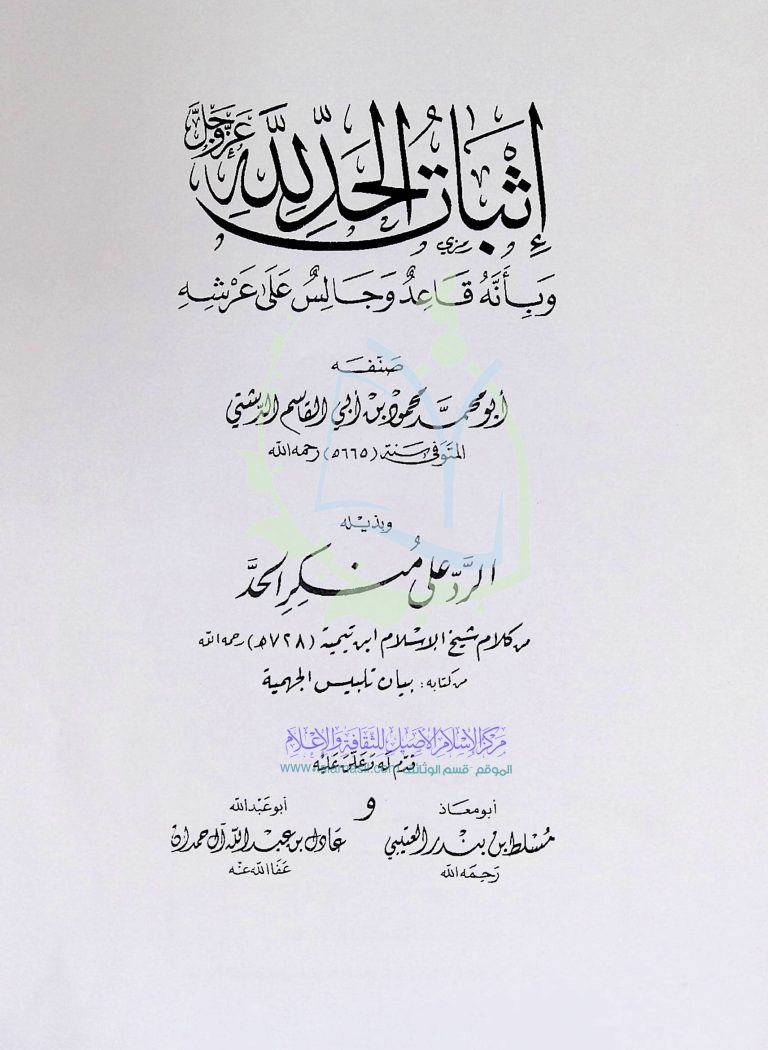 إِثْبَاتُ الْحَدِّ لِلَّهِ عَزَّ وَجَلَّ
وَبِأَنَّهُ قَاعِدٌ وَجَالِسٌ عَلَى عَرْشِهِ
صَنّفَه
أبو محمَّد محمود بن أبي القاسم الدشتي
المتوفى سنة (٦٦٥ه) رحمه الله
وبذيله
الرَّدّ على مُنكِرِ الحَدَّ
من كلام شيخ الإسلام ابن تيمية (٧٢٨ه) رحمه الله
من كتابه: بيان تلبيس الجهمية
مركز الإسلام الأصيل للثقافة والإعلام
قدّم له وعلّق عليه
الموقع - قسم الوثائق www.islamasil.com
أبو معاذ
مُسلط بن بندر العتيبي
رَحِمَه الله
و
أبو عَبْد الله
عادل بن عبد الله آل حمدان
عَفَا الله عَنْه